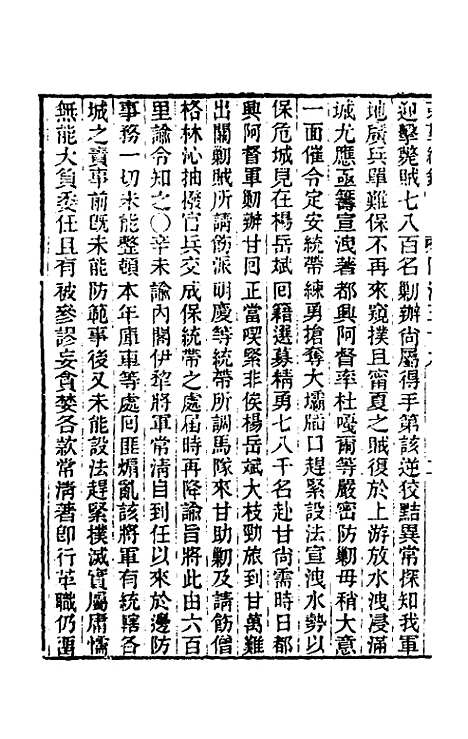 迎擊斃賊七八百名勦辦尚屬得手第該逆狡黠異常探知我軍
地廣兵單難保不再來窺撲且甯夏之賊復於上游放水洩浸滿
城尤應亟籌宣洩著都興阿督率杜嘎爾等嚴密防勦毋稍大意
一面催令定安統帶練勇搶奪大壩牐口趕緊設法宣洩水勢以
保危城見在楊岳斌回籍選募精勇七八千名赴甘尚需時日都
興阿督軍勦辦甘回正當喫緊非俟楊岳斌大枝勁旅到甘萬難
出關勦賊所請飭派明慶等統帶所調馬隊來甘助勦及請飭僧
格林沁抽撥官兵交成保統帶之處屆時再降諭旨將此由六百
里諭令知之○辛未諭內閣伊犂將軍常清自到任以來於邊防
事務一切未能整頓本年庫車等處回匪煽亂該將軍有統轄各
城之責事前旣未能防範事後又未能設法趕緊撲滅實屬庸懦
無能大負委任且有被參謬妄貪婪各款常清著卽行革職仍留